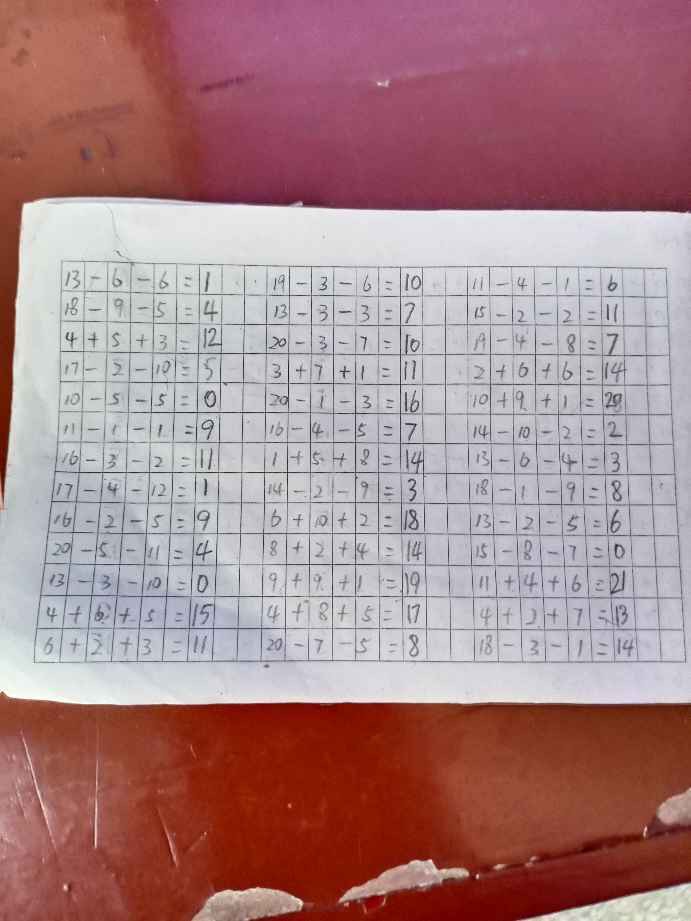 13-6-6=1 19-3-6=10 11-4-1=6
18-9-5=4 13-3-3=7 15-2-2=11
4+5+3=12 20-3-7=10 19-4-8=7
17-2-10=5 3+7+1=11 2+6+6=14
10-5-5=0 20-1-3=16 10+9+1=20
11-1-1=9 16-4-5=7 14-10-2=2
16-3-2=11 1+5+8=14 13-6-4=3
17-4-12=1 14-2-9=3 18-1-9=8
16-2-5=9 6+10+2=18 13-2-5=6
20-5-11=4 8+2+4=14 15-8-7=0
13-3-10=0 9+9+1=19 11+4+6=21
4+6+5=15 4+8+5=17 4+2+7=13
6+2+3=11 20-7-5=8 18-3-1=14